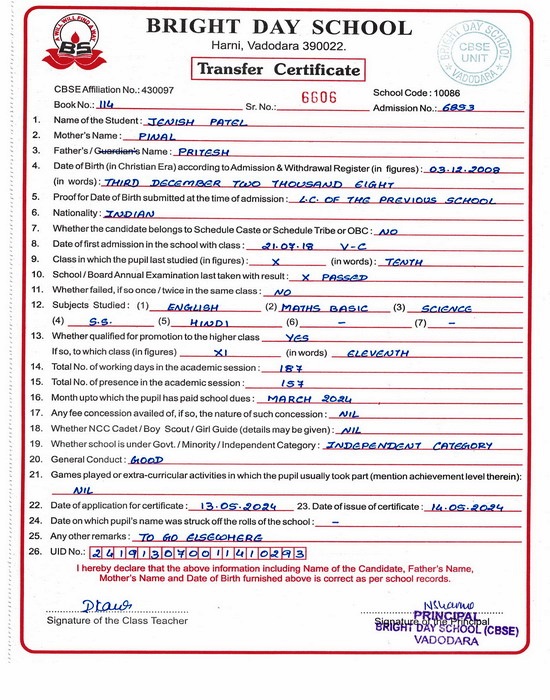 A WILL WILL FIND A WAY
BS
BRIGHT DAY SCHOOL
Harni, Vadodara 390022.
Transfer Certificate
BRIGHT DAY SCHOOL
CBSE
UNIT
VADODARA
CBSE Affiliation No.: 430097
School Code : 10086
Book No.: 114 Sr. No.: 6606 Admission No.: 6853
1. Name of the Student : JENISH PATEL
2. Mother's Name : PINAL
3. Father's / Guardian's Name : PRITESH
4. Date of Birth (in Christian Era) according to Admission & Withdrawal Register (in figures) : 03.12.2008
(in words) : THIRD DECEMBER TWO THOUSAND EIGHT
5. Proof for Date of Birth submitted at the time of admission : L.C. OF THE PREVIOUS SCHOOL
6. Nationality : INDIAN
7. Whether the candidate belongs to Schedule Caste or Schedule Tribe or OBC : NO
8. Date of first admission in the school with class : 21.07.18 V-C
9. Class in which the pupil last studied (in figures) : X (in words) : TENTH
10. School / Board Annual Examination last taken with result : X PASSED
11. Whether failed, if so once / twice in the same class : NO
12. Subjects Studied : (1) ENGLISH (2) MATHS BASIC (3) SCIENCE
(4) S.S. (5) HINDI (6) – (7) –
13. Whether qualified for promotion to the higher class YES
If so, to which class (in figures) XI (in words) ELEVENTH
14. Total No. of working days in the academic session : 187
15. Total No. of presence in the academic session : 157
16. Month upto which the pupil has paid school dues : MARCH 2024
17. Any fee concession availed of, if so, the nature of such concession : NIL
18. Whether NCC Cadet / Boy Scout / Girl Guide (details may be given) : NIL
19. Whether school is under Govt. / Minority / Independent Category : INDEPENDENT CATEGORY
20. General Conduct : GOOD
21. Games played or extra-curricular activities in which the pupil usually took part (mention achievement level therein):
NIL
22. Date of application for certificate : 13.05.2024 23. Date of issue of certificate : 14.05.2024
24. Date on which pupil's name was struck off the rolls of the school : –
25. Any other remarks : TO GO ELSEWHERE
26. UID No.: 241913070011410293
I hereby declare that the above information including Name of the Candidate, Father's Name,
Mother's Name and Date of Birth furnished above is correct as per school records.
Signature of the Class Teacher
Signature of the Principal
PRINCIPAL
BRIGHT DAY SCHOOL (CBSE)
VADODARA